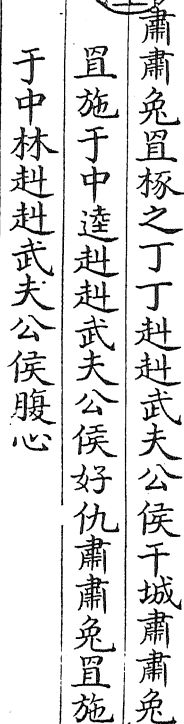 肅肅兔罝椓之丁丁赳赳武夫公侯干城肅肅兔
罝施于中逵赳赳武夫公侯好仇肅肅兔罝施
于中林赳赳武夫公侯腹心